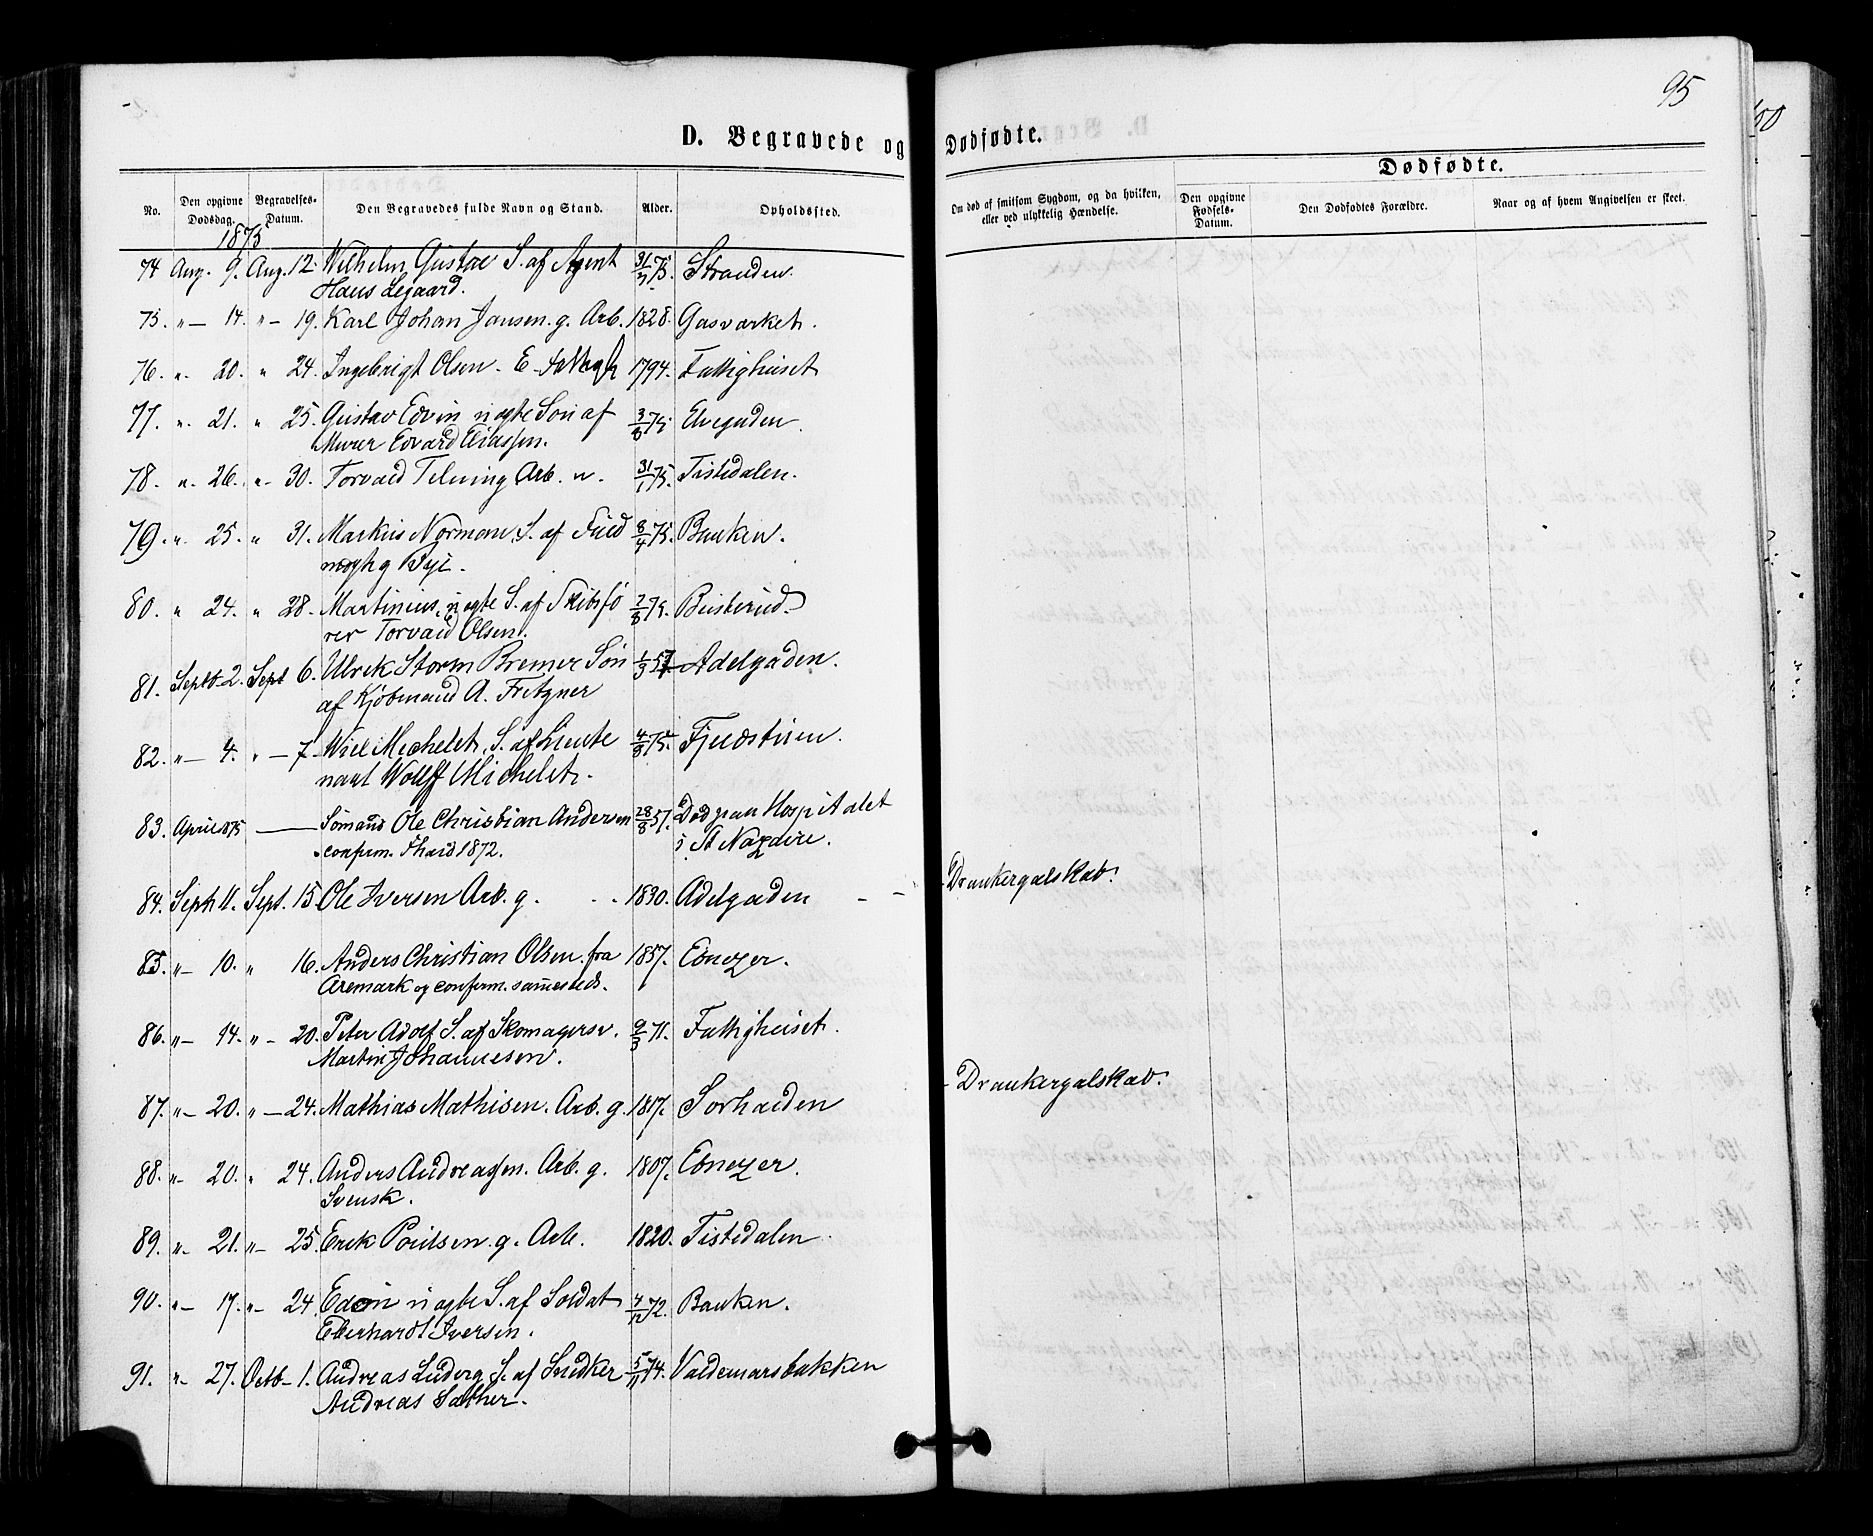 95
100
D. Begravede og Dødfødte.
Dødfødte.
No.
Den opgivne Dødsdag.
Begravelses-Datum.
Den Begravedes fulde Navn og Stand.
Alder.
Opholdssted.
Om død af smitsom Sygdom, og da hvilken, eller ved ulykkelig Hændelse.
Den opgivne Fødsels-Datum.
Den Dødfødtes Forældre.
Naar og af hvem Angivelsen er skeet.
1875
74 Aug. 9. Aug. 12. Wilhelm Gustav S. af Agent 31/7 75. Stranden.
Hans Legaard.
75. " — 14. " — 19. Karl Johan Jansen. g. Arb. 1828. Gasværket.
76. " 20. " 24. Ingebrigt Olsen. E. 1794. Fattighuset
77. " 21. " 25. Gustav Edvin uægte Søn af 3/8 75 Elvegaden.
Murer Edvard Eliassen.
78. " 26. " 30. Torvald Telning Arb. u. 31/1 75. Tistedalen.
79. " 25. " 31. Markus Norman, S. af Fuld 8/4 75. Banken.
mægtig Bye.
80. " 24. " 28. Martinius, uægte S. af Skibsfø 7/8 75. Busterud.
rer Torvald Olsen.
81. Septb. 2. Sept 6. Ulrek Storm Bremer Søn 1/3 57 Adelgaden.
af Kjøbmand A. Fritzner
82. " — 4. " — 7. Wiel Michelet, S. af Lieute 4/8 75. Fjeldstuen.
nant Wolff Michelet.
83. April 1875 — Sømand Ole Christian Andersen 28/8 57. Død paa Hospitalet
confirm. Fhald 1872. i St Nazaire.
84. Septb 11. Sept. 15. Ole Iversen Arb. g. 1830. Adelgaden — Drankergalskab.
85. " — 10. " 16. Anders Christian Olsen. fra 1857. Ebnezer.
Aremark og confirm. sammesteds.
86. " — 14. " — 20. Peter Adolf S. af Skomagersv. 9/3 71. Fattighuset.
Martin Johannesen.
87. " — 20. " — 24. Mathias Mathisen. Arb. g. 1817. Sørhalden — Drankergalskab.
88. " — 20. " 24. Anders Andreassen. Arb. g. 1807. Ebnezer.
Svensk.
89. " — 21. " — 25. Erik Poulsen. g. Arb. 1820. Tistedalen.
90. " — 17. " — 24. Edvin uægte S. af Soldat 4/12 72. Banken.
Eberhardt Iversen.
91. " — 27. Octb. 1. Andreas Ludvig S. af Snidker 5/11 74. Valdemarsbakken
Andreas Sæther.